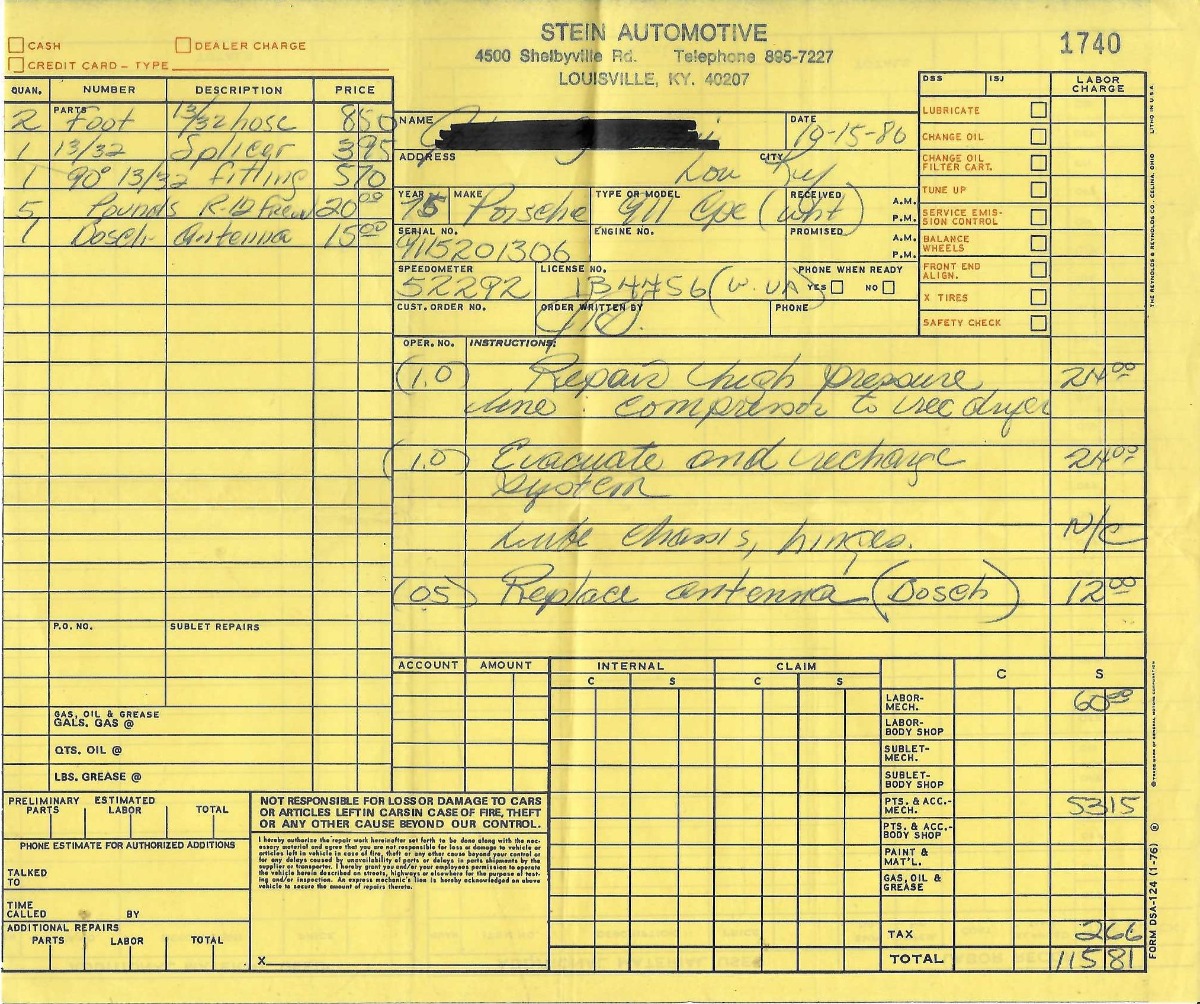 STEIN AUTOMOTIVE
4500 Shelbyville Rd. Telephone 895-7227
LOUISVILLE, KY. 40207
1740
CASH
DEALER CHARGE
CREDIT CARD – TYPE
QUAN. NUMBER DESCRIPTION PRICE
PARTS
2 Foot 13/32 hose 8 50
1 13/32 Splicer 3 95
1 90° 13/32 fitting 5 70
5 Pounds R-12 Freon 20 00
1 Bosch antenna 15 00
P.O. NO. SUBLET REPAIRS
GAS, OIL & GREASE
GALS. GAS @
QTS. OIL @
LBS. GREASE @
NAME DATE 10-15-80
ADDRESS CITY Lou Ky
YEAR 75 MAKE Porsche TYPE OR MODEL 911 Cpe (Wht) RECEIVED A.M. P.M.
SERIAL NO. 9115201306 ENGINE NO. PROMISED A.M. P.M.
SPEEDOMETER 52292 LICENSE NO. 1B4456 (W. VA) PHONE WHEN READY YES NO
CUST. ORDER NO. ORDER WRITTEN BY PHONE
DSS ISJ LABOR CHARGE
LUBRICATE
CHANGE OIL
CHANGE OIL FILTER CART.
TUNE UP
SERVICE EMIS-
SION CONTROL
BALANCE WHEELS
FRONT END ALIGN.
X TIRES
SAFETY CHECK
OPER. NO. INSTRUCTIONS:
(1.0) Repair high pressure 24 00
line : compressor to rec dryer
(1.0) Evacuate and recharge 24 00
system
Lube chassis, hinges. N/C
(05) Replace antenna (Bosch) 12 00
ACCOUNT AMOUNT INTERNAL CLAIM
C S C S C S
LABOR-MECH. 60 00
LABOR-BODY SHOP
SUBLET-MECH.
SUBLET-BODY SHOP
PTS. & ACC.-MECH. 53 15
PTS. & ACC.-BODY SHOP
PAINT & MAT'L.
GAS, OIL & GREASE
TAX 2 66
TOTAL 115 81
PRELIMINARY ESTIMATED
PARTS LABOR TOTAL
PHONE ESTIMATE FOR AUTHORIZED ADDITIONS
TALKED TO
TIME CALLED BY
ADDITIONAL REPAIRS
PARTS LABOR TOTAL
NOT RESPONSIBLE FOR LOSS OR DAMAGE TO CARS
OR ARTICLES LEFT IN CARS IN CASE OF FIRE, THEFT
OR ANY OTHER CAUSE BEYOND OUR CONTROL.
I hereby authorize the repair work hereinafter set forth to be done along with the nec-
essary material and agree that you are not responsible for loss or damage to vehicle or
articles left in vehicle in case of fire, theft or any other cause beyond your control or
for any delays caused by unavailability of parts or delays in parts shipments by the
supplier or transporter. I hereby grant you and/or your employees permission to operate
the vehicle herein described on streets, highways or elsewhere for the purpose of test-
ing and/or inspection. An express mechanic's lien is hereby acknowledged on above
vehicle to secure the amount of repairs thereto.
X
LITHO IN U.S.A.
THE REYNOLDS & REYNOLDS CO., CELINA, OHIO
FORM DSA-124 (1-76)